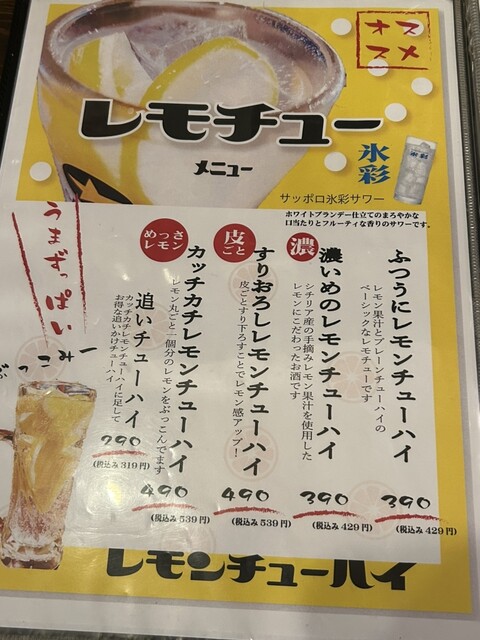 オススメ
レモチュー
メニュー
氷彩
サッポロ氷彩サワー
ホワイトブランデー仕立てのまろやかな
口当たりとフルーティな香りのサワーです。
ふつうにレモンチューハイ
レモン果汁とプレーンチューハイの
ベーシックなレモチューです
390
(税込み 429 円)
濃
濃いめのレモンチューハイ
シチリア産の手摘みレモン果汁を使用した
レモンにこだわったお酒です
390
(税込み 429 円)
皮ごと
すりおろしレモンチューハイ
皮ごとすり下ろすことでレモン感アップ！
490
(税込み 539 円)
めっさ
レモン
カッチカチレモンチューハイ
レモン丸ごと一個分のレモンをぶっこんでます
490
(税込み 539 円)
追いチューハイ
カッチカチレモンチューハイに足して
お得な追いかけチューハイ
290
(税込み 319 円)
うまずっぱい
ぶっこみー
レモンチューハイ